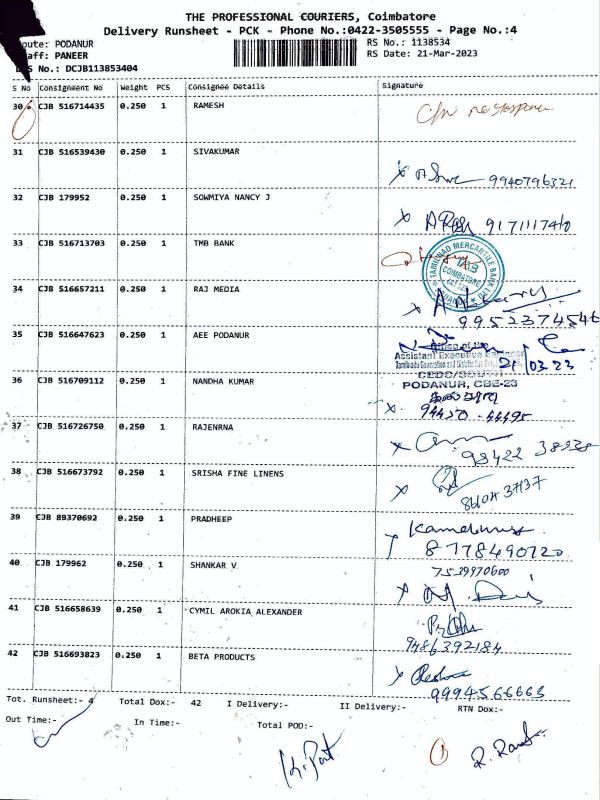 THE PROFESSIONAL COURIERS, Coimbatore
Delivery Runsheet - PCK - Phone No.:0422-3505555 - Page No.:4
oute: PODANUR RS No.: 1138534
aff: PANEER RS Date: 21-Mar-2023
S No.: DCJB113853404
S No Consignment No Weight PCS Consignee Details Signature
30 CJB 516714435 0.250 1 RAMESH
31 CJB 516539430 0.250 1 SIVAKUMAR
9940796321
32 CJB 179952 0.250 1 SOWMIYA NANCY J
9171117410
33 CJB 516713703 0.250 1 TMB BANK
TAMILNAD MERCANTILE BANK LTD
COIMBATORE
34 CJB 516657211 0.250 1 RAJ MEDIA
9952374546
35 CJB 516647623 0.250 1 AEE PODANUR
Office of the
Assistant Executive
21/03.23
PODANUR, CBE-23
36 CJB 516709112 0.250 1 NANDHA KUMAR
94450-44495
37 CJB 516726750 0.250 1 RAJENRNA
98422 38938
38 CJB 516673792 0.250 1 SRISHA FINE LINENS
39 CJB 89370692 0.250 1 PRADHEEP
8778490720
40 CJB 179962 0.250 1 SHANKAR V
7539970600
41 CJB 516658639 0.250 1 CYMIL AROKIA ALEXANDER
9486392184
42 CJB 516693823 0.250 1 BETA PRODUCTS
9994566663
Tot. Runsheet:- 4 Total Dox:- 42 I Delivery:- II Delivery:- RTN Dox:-
Out Time:- In Time:- Total POD:-